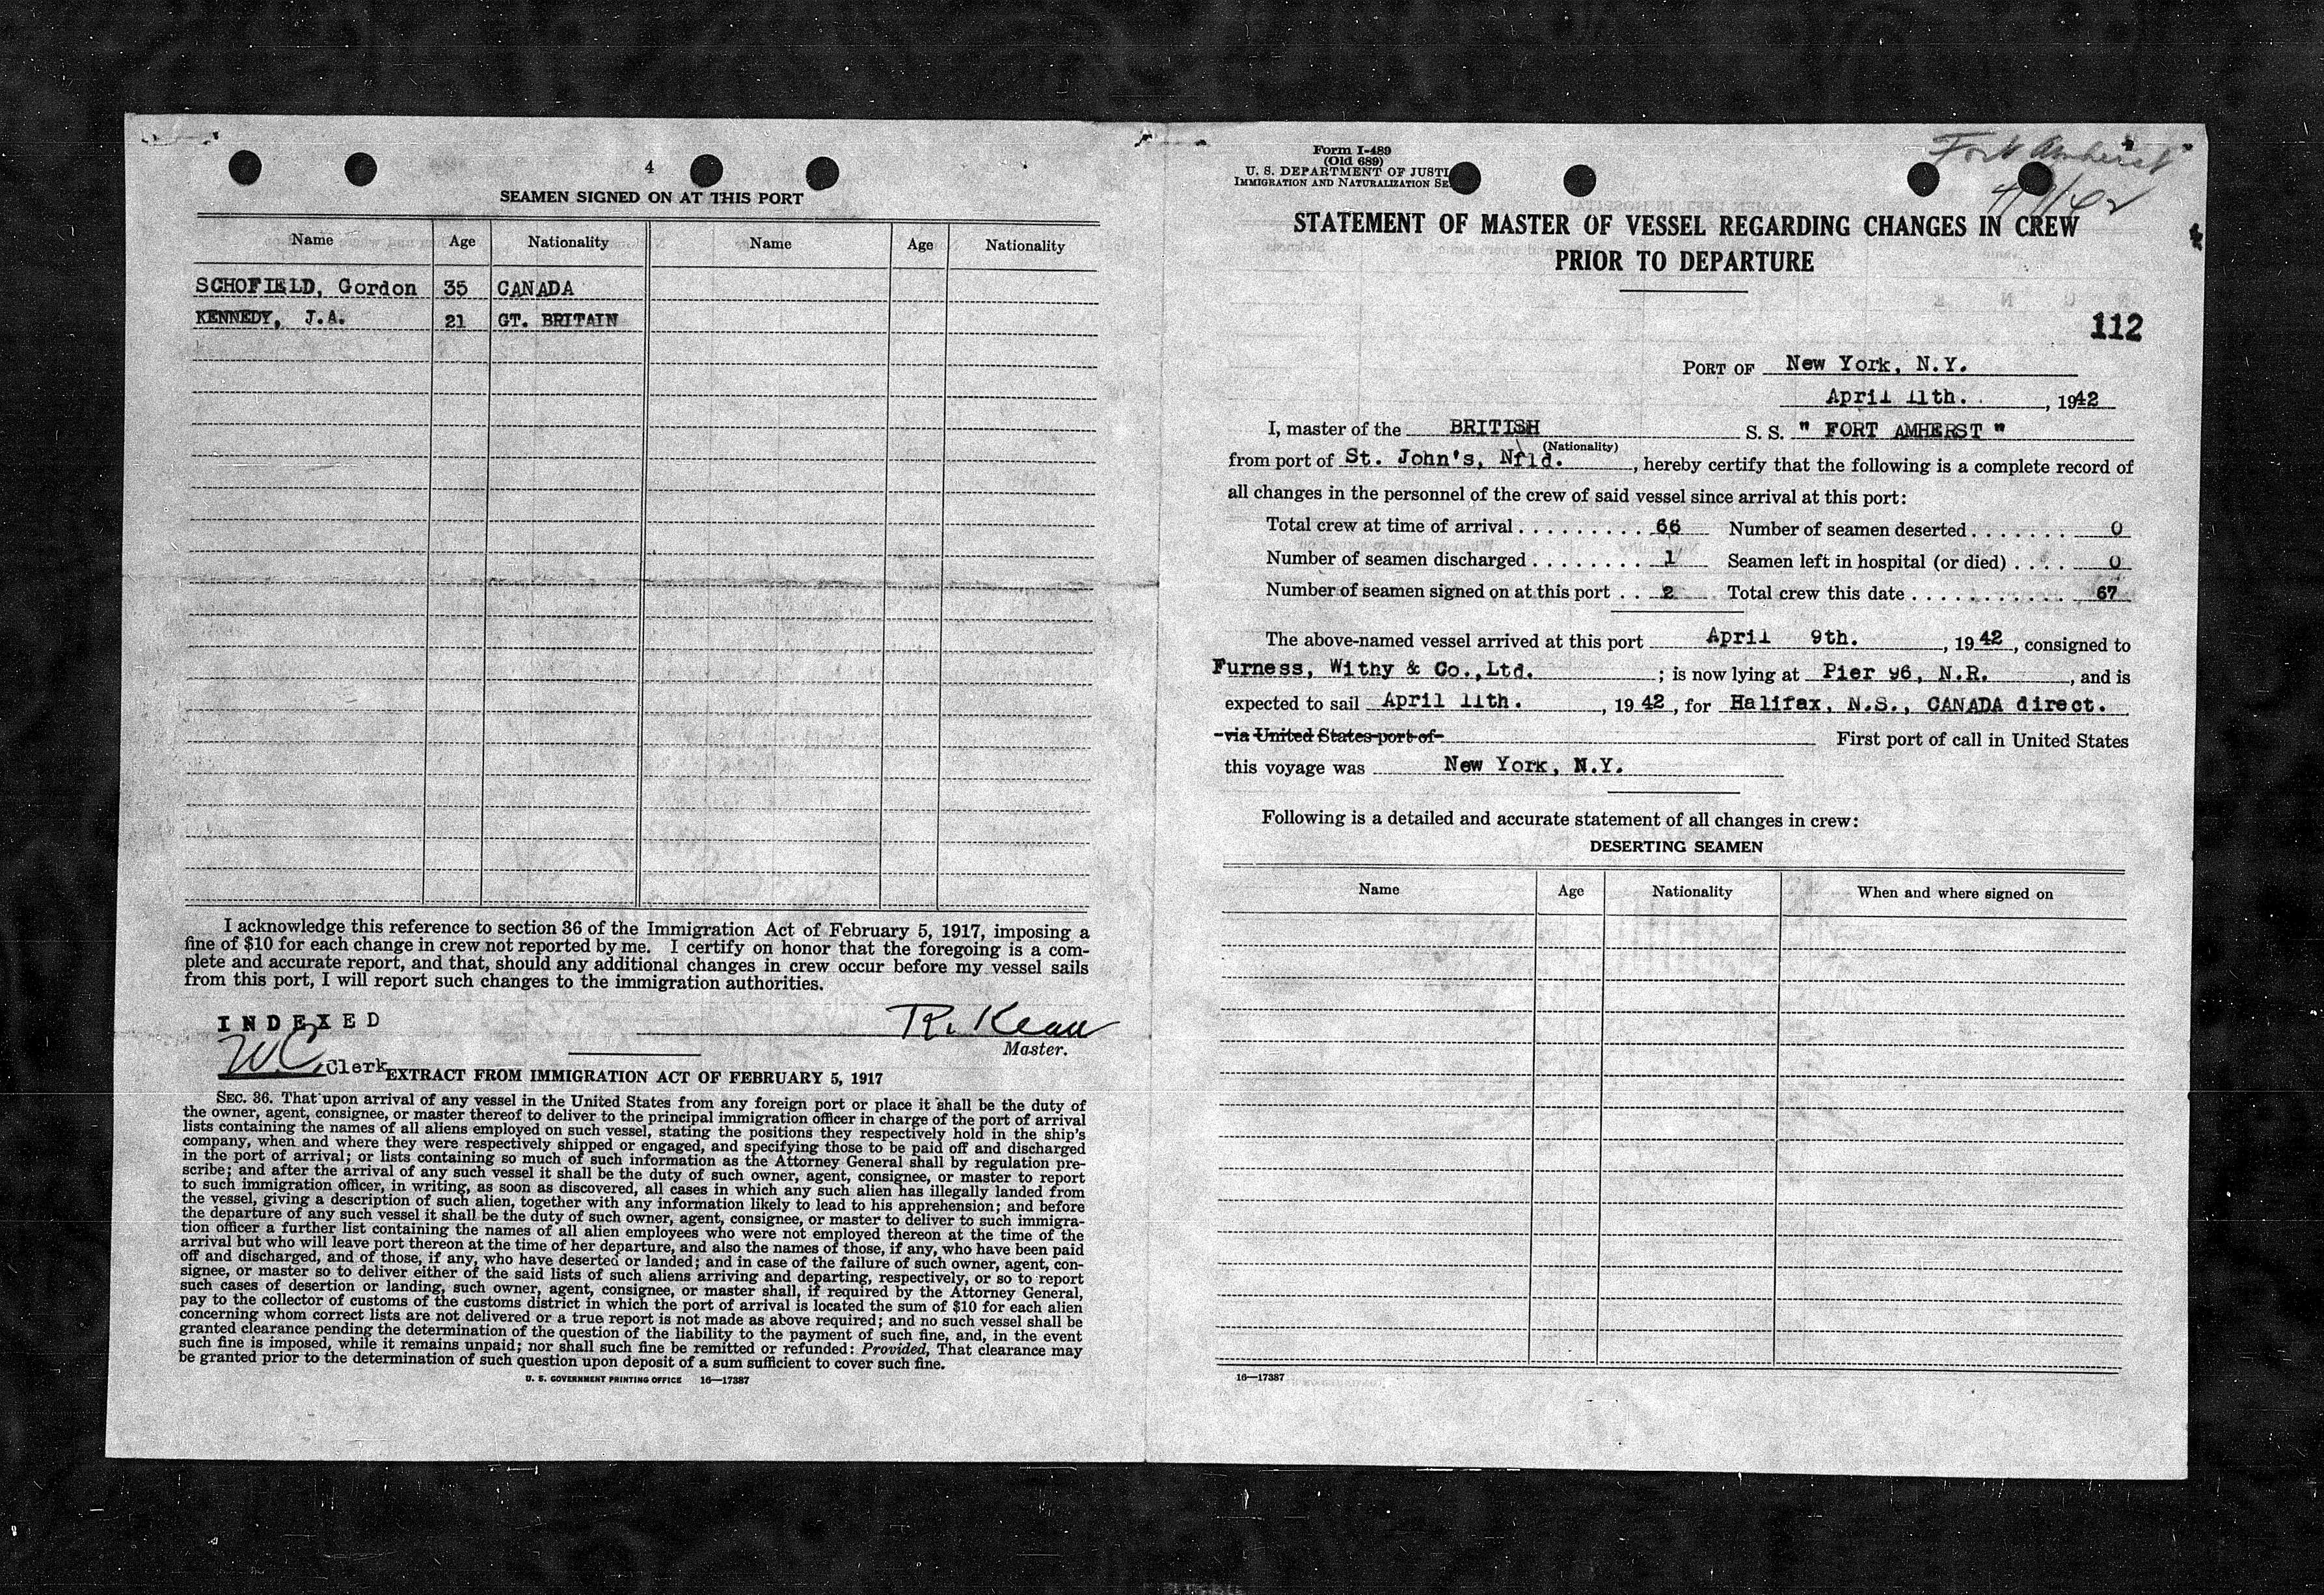 4
SEAMEN SIGNED ON AT THIS PORT
Name Age Nationality Name Age Nationality
SCHOFIELD, Gordon 35 CANADA
KENNEDY, J.A. 21 GT. BRITAIN
I acknowledge this reference to section 36 of the Immigration Act of February 5, 1917, imposing a
fine of $10 for each change in crew not reported by me. I certify on honor that the foregoing is a com-
plete and accurate report, and that, should any additional changes in crew occur before my vessel sails
from this port, I will report such changes to the immigration authorities.
INDEXED
R. Kean
Master.
WC Clerk
EXTRACT FROM IMMIGRATION ACT OF FEBRUARY 5, 1917
SEC. 36. That upon arrival of any vessel in the United States from any foreign port or place it shall be the duty of
the owner, agent, consignee, or master thereof to deliver to the principal immigration officer in charge of the port of arrival
lists containing the names of all aliens employed on such vessel, stating the positions they respectively hold in the ship's
company, when and where they were respectively shipped or engaged, and specifying those to be paid off and discharged
in the port of arrival; or lists containing so much of such information as the Attorney General shall by regulation pre-
scribe; and after the arrival of any such vessel it shall be the duty of such owner, agent, consignee, or master to report
to such immigration officer, in writing, as soon as discovered, all cases in which any such alien has illegally landed from
the vessel, giving a description of such alien, together with any information likely to lead to his apprehension; and before
the departure of any such vessel it shall be the duty of such owner, agent, consignee, or master to deliver to such immigra-
tion officer a further list containing the names of all alien employees who were not employed thereon at the time of the
arrival but who will leave port thereon at the time of her departure, and also the names of those, if any, who have been paid
off and discharged, and of those, if any, who have deserted or landed; and in case of the failure of such owner, agent, con-
signee, or master so to deliver either of the said lists of such aliens arriving and departing, respectively, or so to report
such cases of desertion or landing, such owner, agent, consignee, or master shall, if required by the Attorney General,
pay to the collector of customs of the customs district in which the port of arrival is located the sum of $10 for each alien
concerning whom correct lists are not delivered or a true report is not made as above required; and no such vessel shall be
granted clearance pending the determination of the question of the liability to the payment of such fine, and, in the event
such fine is imposed, while it remains unpaid; nor shall such fine be remitted or refunded: Provided, That clearance may
be granted prior to the determination of such question upon deposit of a sum sufficient to cover such fine.
U. S. GOVERNMENT PRINTING OFFICE 16—17387
Form I-489
(Old 689)
U. S. DEPARTMENT OF JUSTI
IMMIGRATION AND NATURALIZATION SE
Fort Amherst
4/9/42
STATEMENT OF MASTER OF VESSEL REGARDING CHANGES IN CREW
PRIOR TO DEPARTURE
112
PORT OF New York, N.Y.
April 11th. , 1942
I, master of the BRITISH S. S. " FORT AMHERST "
(Nationality)
from port of St. John's, Nfld. , hereby certify that the following is a complete record of
all changes in the personnel of the crew of said vessel since arrival at this port:
Total crew at time of arrival . . . . . . . . . 66 Number of seamen deserted . . . . . . . 0
Number of seamen discharged . . . . . . . . 1 Seamen left in hospital (or died) . . . . 0
Number of seamen signed on at this port . . 2 Total crew this date . . . . . . . . . . . 67
The above-named vessel arrived at this port April 9th. , 1942, consigned to
Furness, Withy & Co.,Ltd. ; is now lying at Pier 96, N.R. , and is
expected to sail April 11th. , 1942, for Halifax, N.S., CANADA direct.
via United States port of First port of call in United States
this voyage was New York, N.Y.
Following is a detailed and accurate statement of all changes in crew:
DESERTING SEAMEN
Name Age Nationality When and where signed on
16—17387